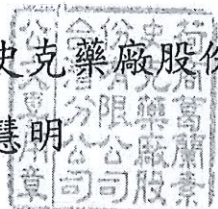 史克藥廠股份
慧明
荷商葛蘭素
史克藥廠股
份有限公司
台灣分公司
公文專用章